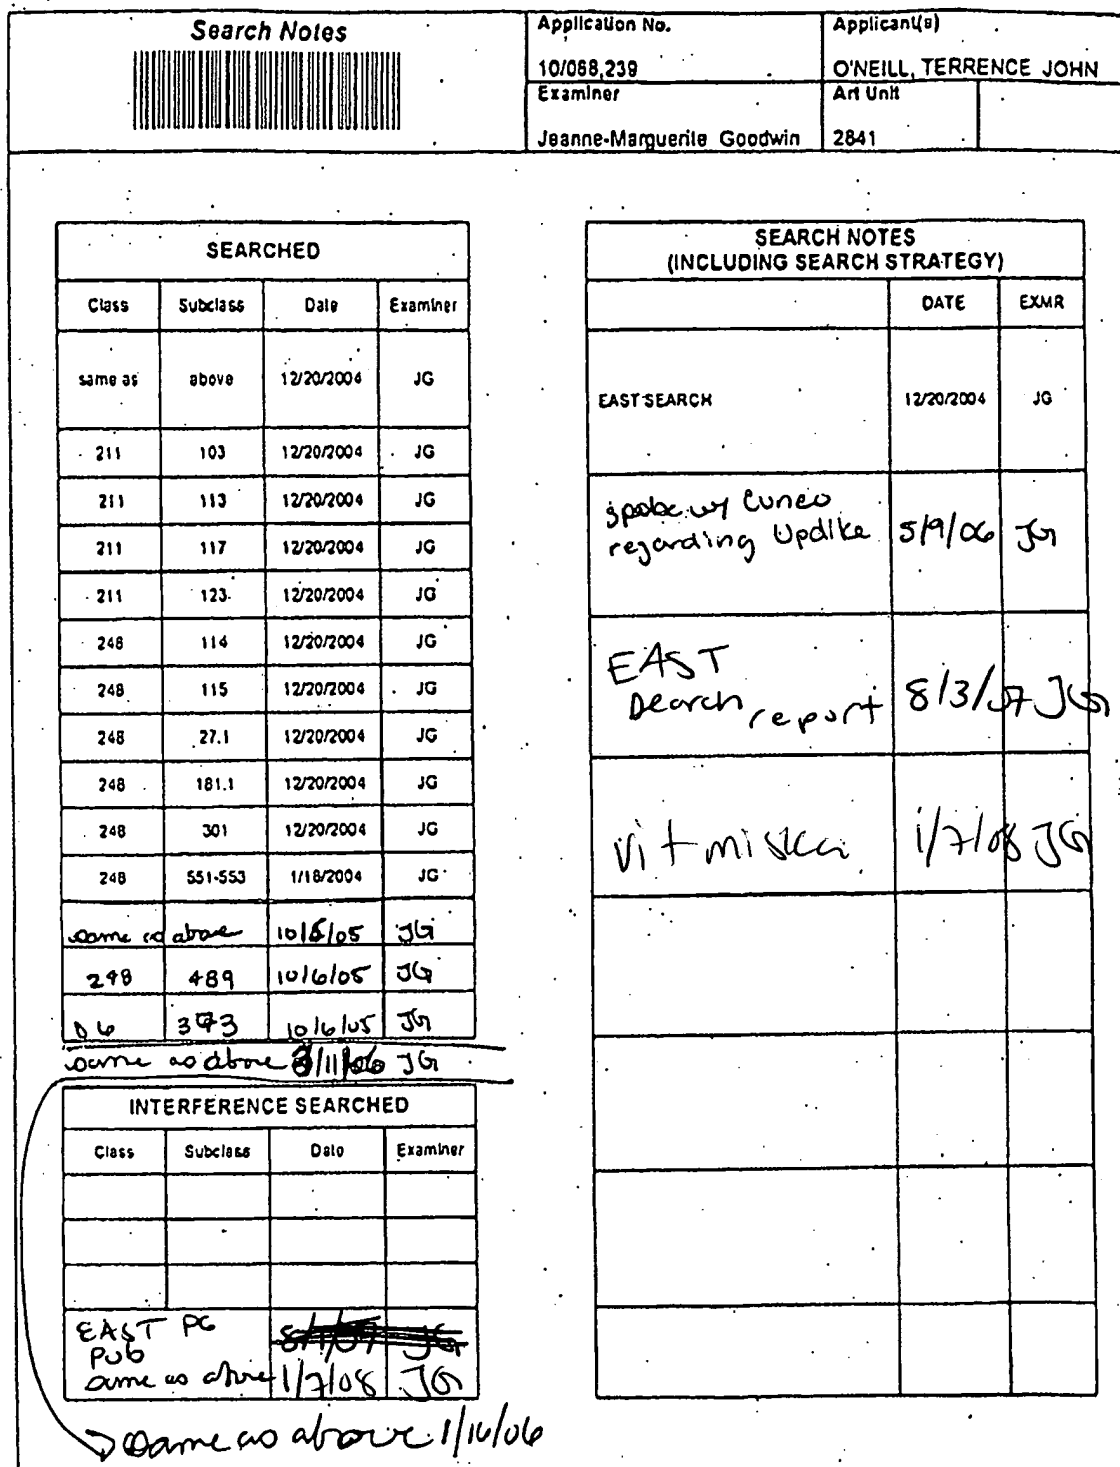 Search Notes
Application No.
Applicant(s)
10/068,239
O'NEILL, TERRENCE JOHN
Examiner
Art Unit
Jeanne-Marguerite Goodwin
2841
SEARCHED
Class Subclass Date Examiner
same as above 12/20/2004 JG
211 103 12/20/2004 JG
211 113 12/20/2004 JG
211 117 12/20/2004 JG
211 123 12/20/2004 JG
248 114 12/20/2004 JG
248 115 12/20/2004 JG
248 27.1 12/20/2004 JG
248 181.1 12/20/2004 JG
248 301 12/20/2004 JG
248 551-553 1/18/2004 JG
same as above 10/5/05 JG
248 489 10/6/05 JG
D6 373 10/6/05 JG
same as above 3/11/06 JG
INTERFERENCE SEARCHED
Class Subclass Date Examiner
EAST PG
Pub
same as above 1/7/08 JG
same as above 1/16/06
SEARCH NOTES
(INCLUDING SEARCH STRATEGY)
DATE EXMR
EAST SEARCH 12/20/2004 JG
spoke w/ Cuneo
regarding Updike 5/9/06 JG
EAST
search report 8/3/07 JG
Vit miska 1/7/08 JG